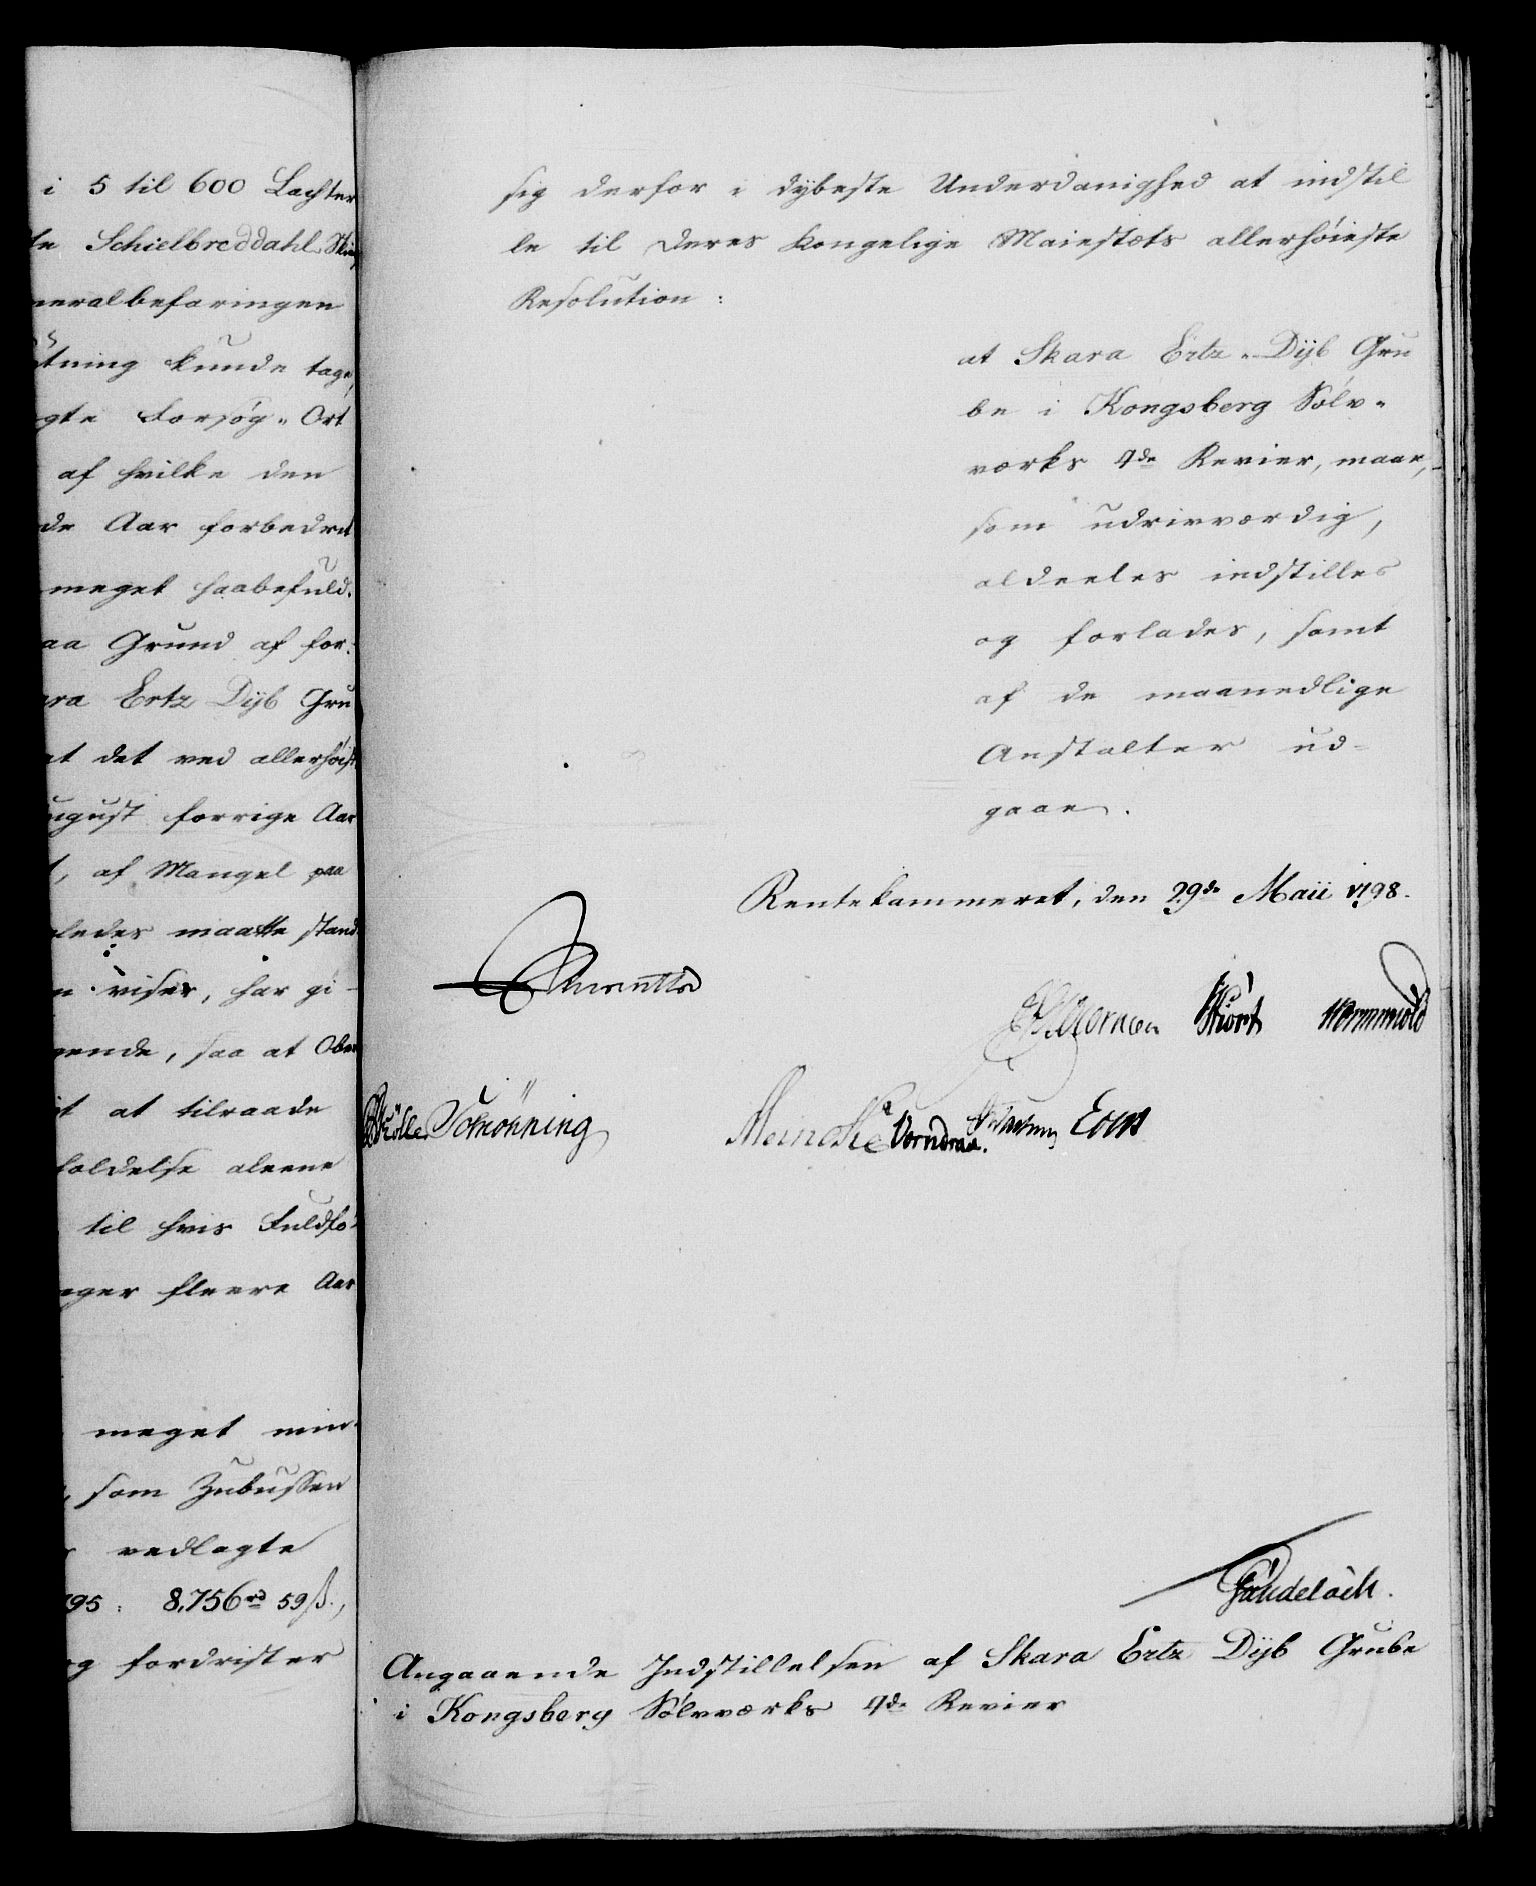 i 5 til 600 Lachter
te Schielbreddahl
neralbefaringen
tning kunde tage,
gte Forsøg-Ort
af hvilke den
de Aar forbedret
meget haabefuld.
aa Grund af for-
ara Ertz Dÿb Gru
at det ved allerhøist
ugust forrige Aar
t, af Mangel paa
ledes maatte stand
n viser, har gi-
gende, saa at Ober
t at tilraade
holdelse aleene
til hvis Fuldfø-
ger fleere Aar
meget min-
, som Zubussen
vedlagte
795: 8,756 rd 59 ß.,
og fordrister
sig derfor i dybeste Underdanighed at indstil
le til Deres Kongelige Maiestæts allerhøieste
Resolution:
at Skara Ertz-Dÿb Gru
be i Kongsberg Sølv-
værks 4de Revier, maae,
som udrivværdig,
aldeeles indstilles
og forlades, samt
af de maanedlige
Anstalter ud-
gaae.
Rentekammeret, den 29de Maii 1798.
Wormskiold
Schønning
Vorndran.
Angaaende Indstillelsen af Skara Ertz Dÿb Grube
i Kongsberg Sølvværks 4de Revier